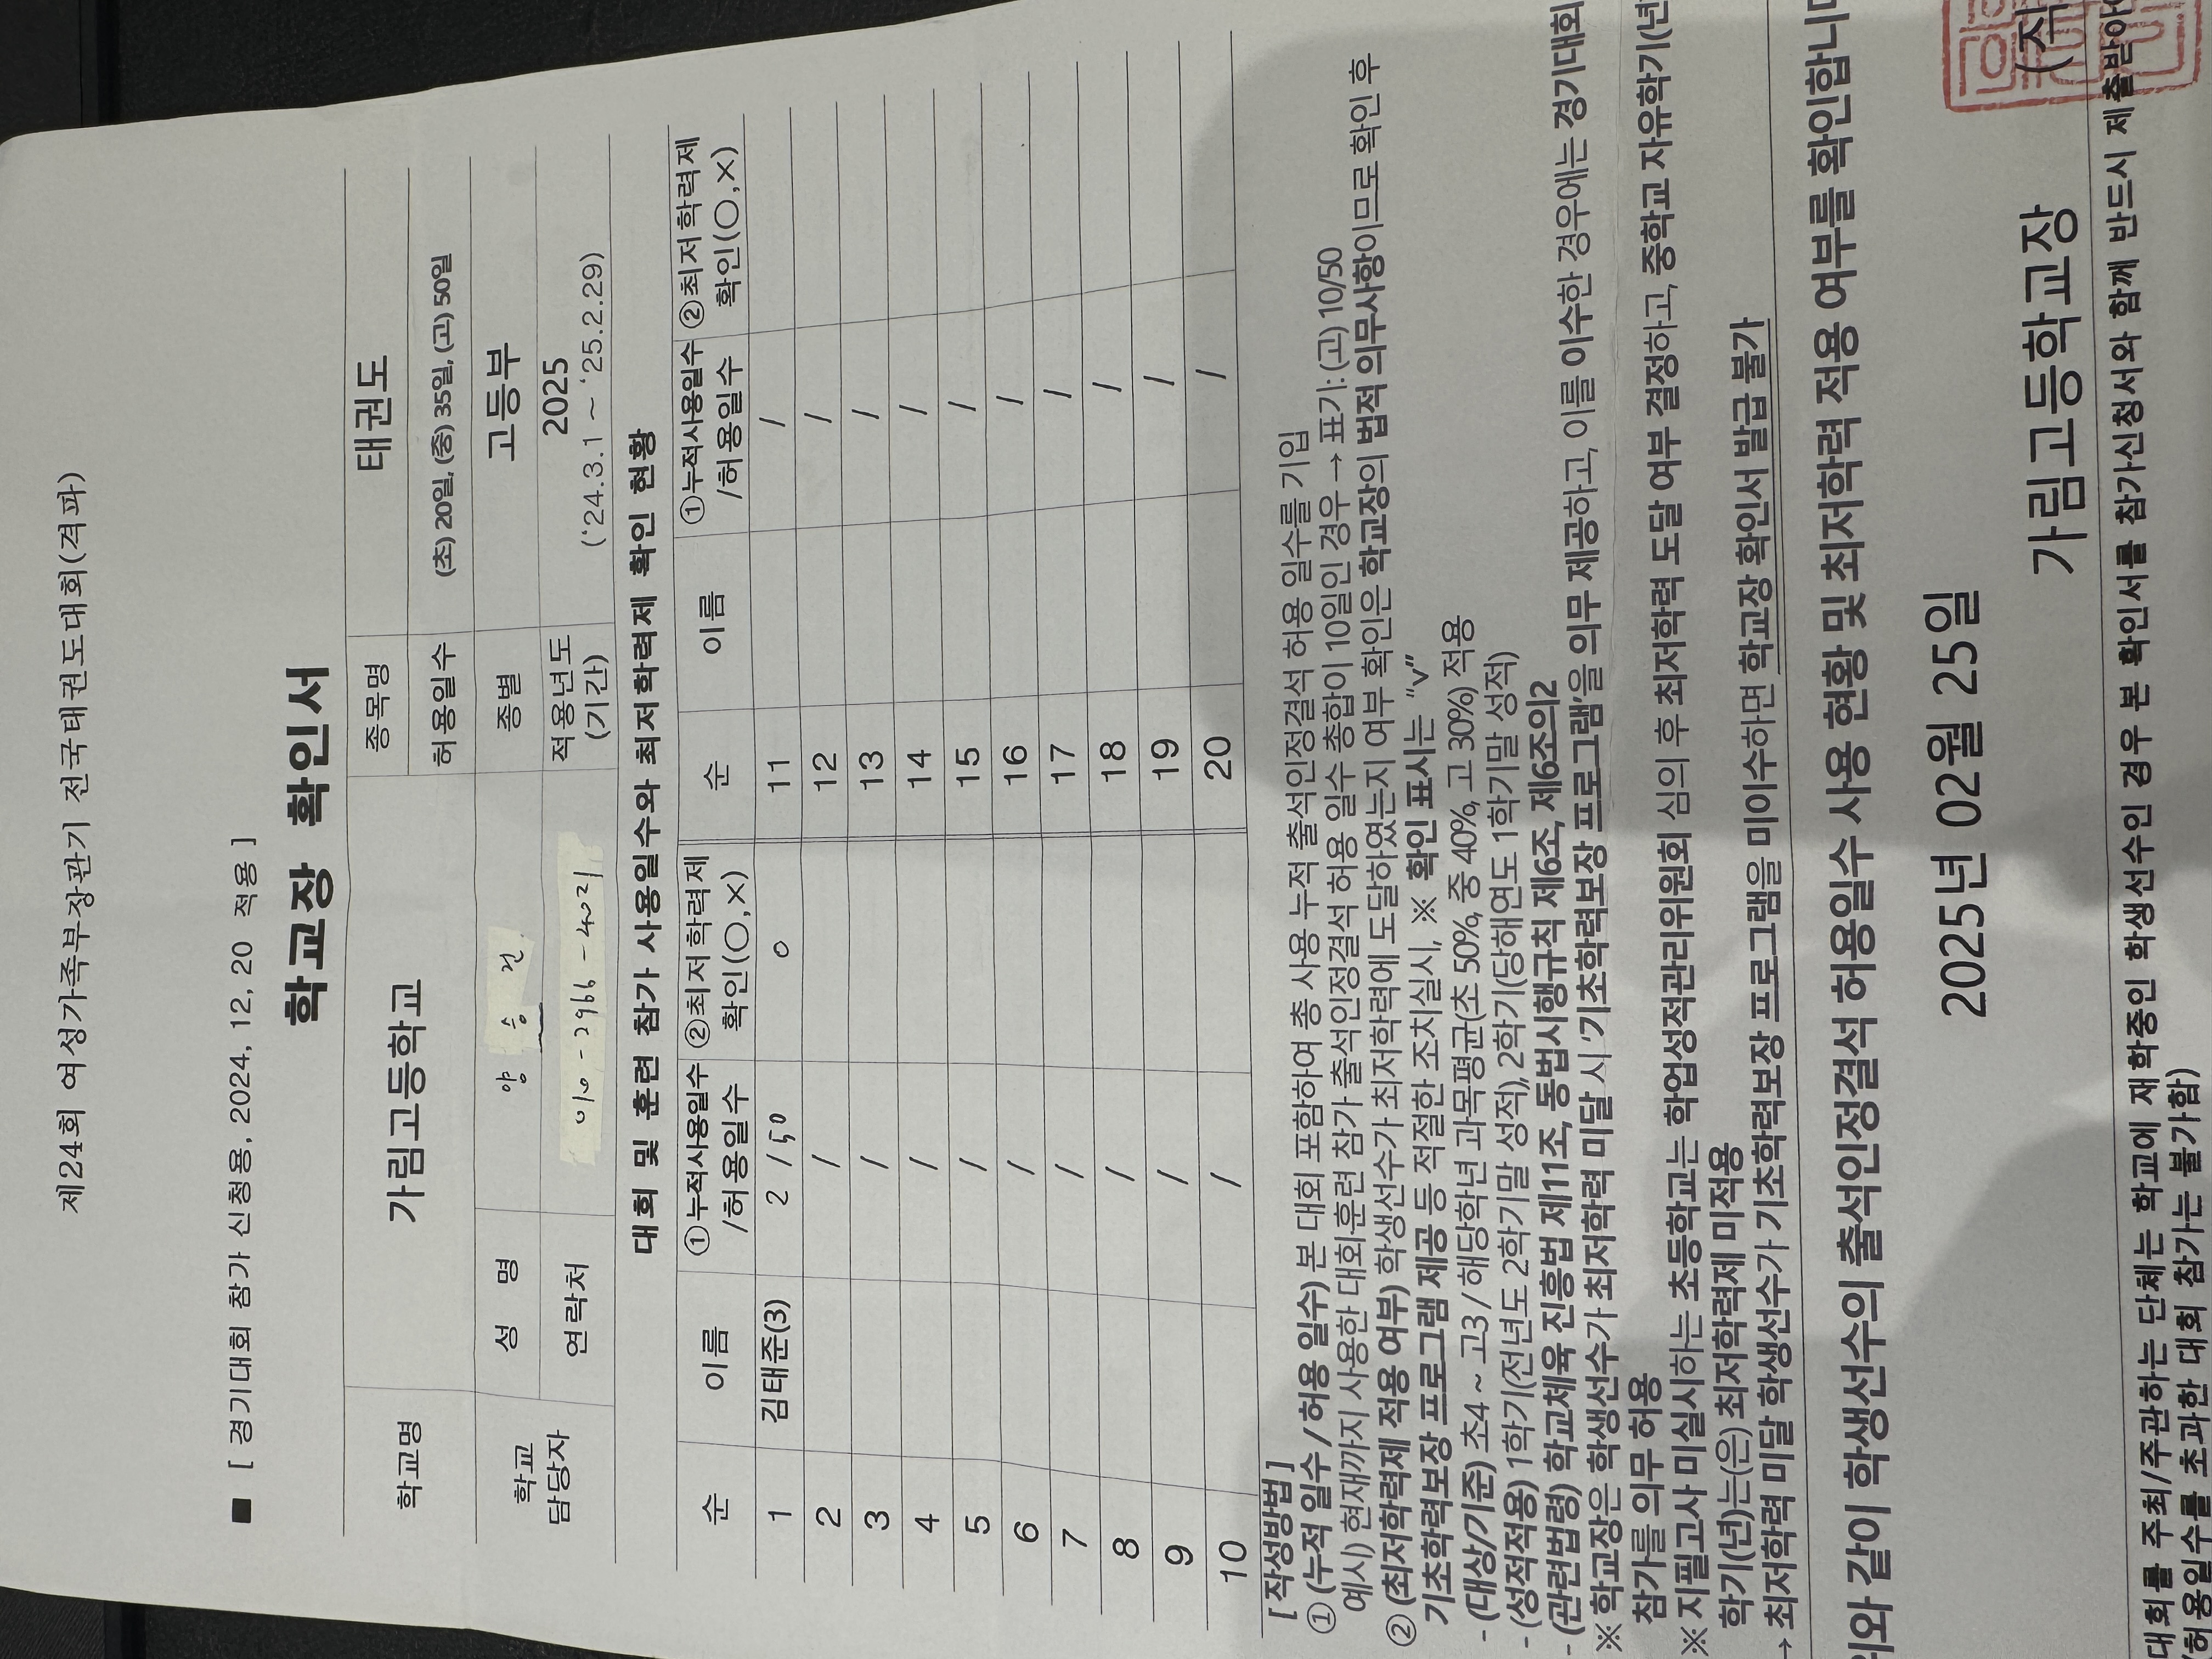 제24회 여성가족부장관기 전국태권도대회(격파)
■ [ 경기대회 참가 신청용, 2024, 12, 20 적용 ]
학교장 확인서
학교명 가림고등학교 종목명 태권도
허용일수 (초) 20일, (중) 35일, (고) 50일
학교 담당자 성 명 양 승 건 종별 고등부
연락처 010-2966-4021 적용년도 (기간) 2025 (‘24.3.1 ~ ‘25.2.29)
대회 및 훈련 참가 사용일수와 최저학력제 확인 현황
순 이름 ①누적사용일수 /허용일수 ②최저학력제 확인(○,×) 순 이름 ①누적사용일수 /허용일수 ②최저학력제 확인(○,×)
1 김태준(3) 2 / 50 ○ 11 /
2 / 12 /
3 / 13 /
4 / 14 /
5 / 15 /
6 / 16 /
7 / 17 /
8 / 18 /
9 / 19 /
10 / 20 /
[ 작성방법 ]
① (누적 일수 / 허용 일수) 본 대회 포함하여 총 사용 누적 출석인정결석 허용 일수를 기입
예시) 현재까지 사용한 대회·훈련 참가 출석인정결석 허용 일수 총합이 10일인 경우 → 표기: (고) 10/50
② (최저학력제 적용 여부) 학생선수가 최저학력에 도달하였는지 여부 확인은 학교장의 법적 의무사항이므로 확인 후
기초학력보장 프로그램 제공 등 적절한 조치실시, ※ 확인 표시는 “v”
- (대상/기준) 초4 ~ 고3 / 해당학년 과목평균(초 50%, 중 40%, 고 30%) 적용
- (성적적용) 1학기(전년도 2학기말 성적), 2학기(당해연도 1학기말 성적)
- (관련법령) 학교체육 진흥법 제11조, 동법시행규칙 제6조, 제6조의2
※ 학교장은 학생선수가 최저학력 미달 시 ‘기초학력보장 프로그램’을 의무 제공하고, 이를 이수한 경우에는 경기대회
참가를 의무 허용
※ 지필고사 미실시하는 초등학교는 학업성적관리위원회 심의 후 최저학력 도달 여부 결정하고, 중학교 자유학기(년
학기(년)는(은) 최저학력제 미적용
→ 최저학력 미달 학생선수가 기초학력보장 프로그램을 미이수하면 학교장 확인서 발급 불가
위와 같이 학생선수의 출석인정결석 허용일수 사용 현황 및 최저학력 적용 여부를 확인합니다
2025년 02월 25일
가림고등학교장 (직
대회를 주최/주관하는 단체는 학교에 재학중인 학생선수인 경우 본 확인서를 참가신청서와 함께 반드시 제출받아야
(허용일수를 초과한 대회 참가는 불가함)